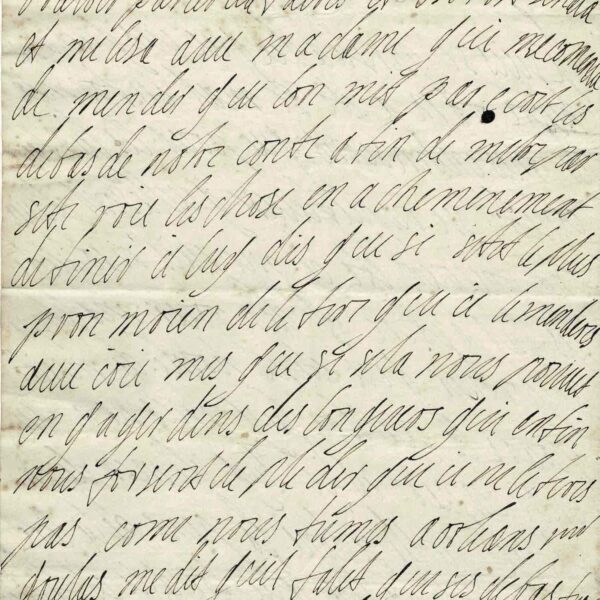 et me lisa avec madame qui me comenda
de mender que lon mit par ecoit les
debas de notre conte afin de metre par
sete voie les chose en acheminement
de finir ie luy dis que si setet le plus
pron moien de le fere que ie le manderes
avec ioie mes que si sela nous pouvet
en gager dens des longeurs qui enfin
nous forseret de pleder que ie ne le ferois
pas come nous fumes a orleans mr
douglas me dit quil falet que ses debas fu